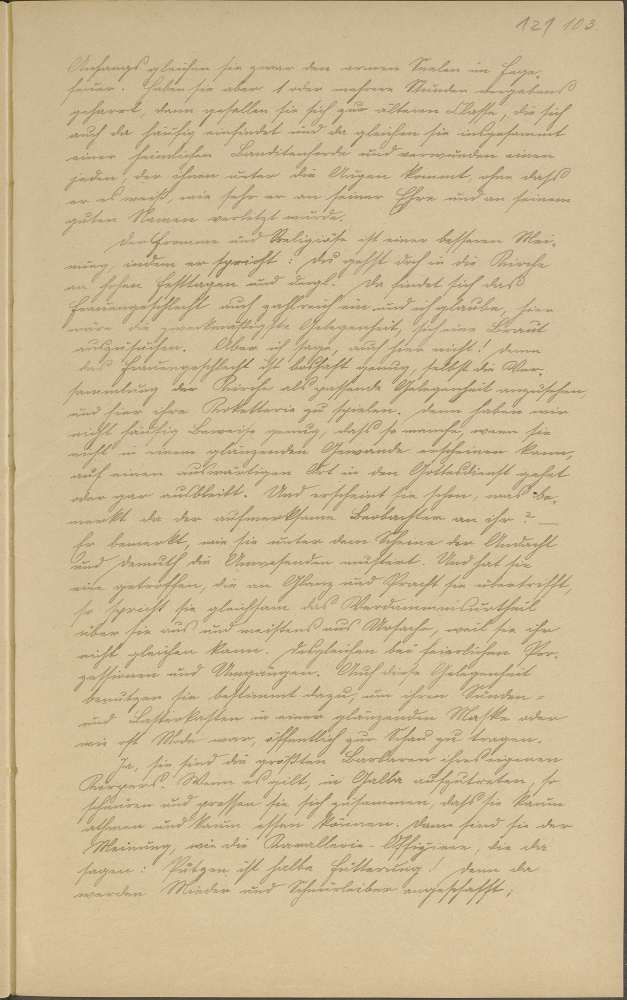 121 103
Anfangs gleichen sie zwar den armen Seelen im Fege-
feuer. Haben sie aber 1 oder mehrere Stunden vergebens
geharrt, dann gesellen sie sich zur älteren Classe, die sich
auch da häufig einfindet und da gleichen sie insgesammt
einer heimlichen Banditenhorde und verwunden einen
jeden, der ihnen unter die Augen kommt, ohne dass
er es weiß, wie sehr er an seiner Ehre und an seinem
guten Namen verletzt wurde.
Der Fromme und Religiöse ist einer besseren Mei-
nung, indem er spricht: Du gehst doch in die Kirche
an hohen Festtagen und dergl. Da findet sich das
Frauengeschlecht auch zahlreich ein und ich glaube, hier
wäre die zweckmäßigste Gelegenheit, sich eine Braut
auszusuchen. Aber ich sage, auch hier nicht! Denn
das Frauengeschlecht ist boshaft genug, selbst die Ver-
sammlung der Kirche als passende Gelegenheit anzusehen,
und hier ihre Koketterie zu spielen. Denn haben wir
nicht häufig Beweise genug, dass so manche, wenn sie
nicht in einem glänzenden Gewande erscheinen kann,
auf einen auswärtigen Ort in den Gottesdienst gehet
oder gar ausbleibt. Und erscheint sie schon, was be-
merkt da der aufmerksame Beobachter an ihr? —
Er bemerkt, wie sie unter dem Scheine der Andacht
und Demuth die Anwesenden mustert. Und hat sie
eine getroffen, die an Glanz und Pracht sie übertrifft,
so spricht sie gleichsam das Verdammnisurtheil
über sie aus und meistens aus Ursache, weil sie ihr
nicht gleichen kann. Desgleichen bei feierlichen Pro-
zessionen und Umgängen. Auch diese Gelegenheit
benutzen sie bestimmt dazu, um ihren Sünden-
und Lasterkasten in einer glänzenden Maske oder
wie oft Mode war, öffentlich zur Schau zu tragen.
Ja, sie sind die größten Barbaren ihres eigenen
Körpers. Wenn es gilt, in Galla aufzutreten, so
schnüren und pressen sie sich zusammen, dass sie kaum
athmen und kaum essen können. Dann sind sie der
Meinung, wie die Kavallerie-Offiziere, die da
sagen: Putzen ist halbe Fütterung! Denn da
werden Mieder und Schnürleiber angeschafft,